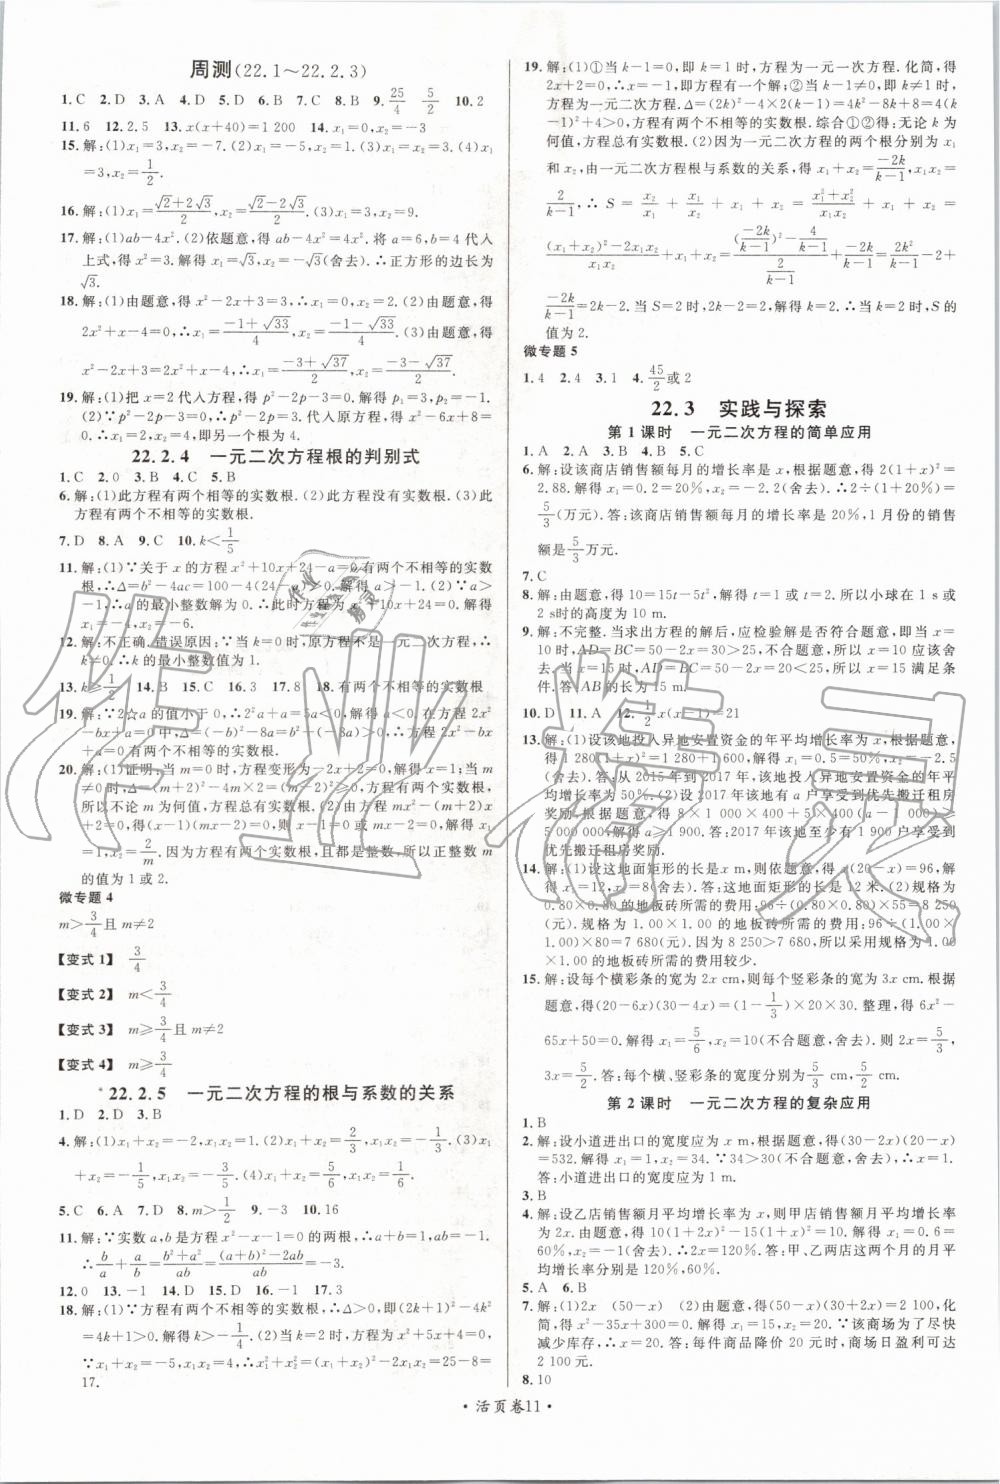 周测(22.1～22.2.3)
1.C 2.D 3.A 4.D 5.D 6.B 7.C 8.B 9.25/4 5/2 10.2
11.6 12.2.5 13.x(x+40)=1 200 14.x₁=0,x₂=-3
15.解:(1)x₁=3,x₂=-7.(2)x₁=-5,x₂=1.(3)x₁=3.(4)x₁
=3,x₂=1/2.
16.解:(1)x₁=(√2+2√3)/2,x₂=(√2-2√3)/2.(3)x₁=3,x₂=9.
17.解:(1)ab-4x².(2)依题意,得 ab-4x²=4x².将 a=6,b=4代入
上式,得 x²=3.解得 x₁=√3,x₂=-√3(舍去).∴正方形的边长为
√3.
18.解:(1)由题意,得 x²-2x+3=3,x₁=0,x₂=2.(2)由题意,得
2x²+x-4=0,∴x₁=(-1+√33)/4,x₂=(-1-√33)/4.(3)由题意,得
x²-2x+3+x²+5x-10=0,∴x₁=(-3+√37)/2,x₂=(-3-√37)/2.
19.解:(1)把 x=2代入方程,得 p²-2p-3=0,解得 p₁=3,p₂=-1.
(2)∵p²-2p-3=0,∴p²-2p=3.代入原方程,得 x²-6x+8=0,
∴x₁=2,x₂=4,即另一个根为4.
22.2.4 一元二次方程根的判别式
1.C 2.0 3.B 4.C 5.B
6.解:(1)此方程有两个相等的实数根.(2)此方程没有实数根.(3)此
方程有两个不相等的实数根.
7.D 8.A 9.C 10.k<1/5
11.解:(1)∵关于 x 的方程 x²+10x+24-a=0有两个不相等的实数
根,∴Δ=b²-4ac=100-4(24-a)>0.解得 a>-1.(2)∵a>
-1,∴a的最小整数解为0.∴此时方程为 x²+10x+24=0.解得
x₁=-4,x₂=-6.
12.解:不正确.错误原因:∵当 k=0时,原方程不是一元二次方程,∴
k≠0.∴k的最小整数值为1.
13.k≥1/2 14.B 15.C 16.3 17.8 18.有两个不相等的实数根
19.解:∵2☆a的值小于0,∴2²a+a=5a<0,解得 a<0.在方程2x²
-bx+a=0中,Δ=b²-8a≥-8a>0,∴方程2x²-bx+a=0有
两个不相等的实数根.
20.解:(1)证明:当 m=0时,方程变形为-x+2=0,解得 x=2;当 m
≠0时,Δ=(m+2)²-4m·2=(m-2)²≥0,方程有两个实数解,
所以不论 m 为何值,方程总有实数根.(2)由方程 mx²-(m+2)x
+2=0,得(x-1)(mx-2)=0,则 x-1=0或 mx-2=0,解得 x₁
=1,x₂=2/m.因为方程有两个实数根,且都是整数,所以正整数 m
的值为1或2.
微专题4
m>3/4且 m≠2
【变式1】 3/4
【变式2】 m<3/4
【变式3】 m≥3/4且 m≠2
【变式4】 m≥3/4
22.2.5 一元二次方程的根与系数的关系
1.D 2.D 3.B
4.解:(1)x₁+x₂=-2,x₁x₂=1.(2)x₁+x₂=2/3,x₁x₂=-1/3.(3)x₁
+x₂=-1/5,x₁x₂=-3/5.(4)x₁+x₂=-2/5,x₁x₂=-1/5.
5.C 6.A 7.D 8.m>1/2 9.-3 10.16
11.解:∵实数 a,b是方程 x²-x-1=0的两根,∴a+b=1,ab=-1.
∴b/a+a/b=(b²+a²)/ab=((a+b)²-2ab)/ab=-3.
12.0 13.-1 14.D 15.D 16.-1 17.3
18.解:(1)∵方程有两个不相等的实数根,∴Δ>0,即(2k+1)²-4k²
=4k+1>0.解得 k>-1/4.(2)当 k=2时,方程为 x²+5x+4=0,
∵x₁+x₂=-5,x₁x₂=4,∴x₁²+x₂²=(x₁+x₂)²-2x₁x₂=25-8=
17.
19.解:(1)①当 k-1=0,即 k=1时,方程为一元一次方程.化简,得
2x+2=0,∴x=-1,即方程有一个解.②当 k-1≠0,即 k≠1时,
方程为一元二次方程.Δ=(2k)²-4×2(k-1)=4k²-8k+8=4(k
-1)²+4>0,∴方程有两个不相等的实数根.综合①②得:无论 k为
何值,方程总有实数根.(2)因为一元二次方程的两个根分别为 x₁
和 x₂,由一元二次方程的根与系数的关系,得 x₁+x₂=-2k/(k-1),x₁x₂=
2/(k-1),∴S=x₂/x₁+x₁/x₂+x₁+x₂=(x₁²+x₂²)/x₁x₂+x₁+x₂=
((x₁+x₂)²-2x₁x₂)/x₁x₂+x₁+x₂=((-2k/(k-1))²-4/(k-1))/(2/(k-1))+(-2k)/(k-1)=2k²/(k-1)-2+
(-2k)/(k-1)=2k-2.当 S=2时,2k-2=2,解得 k=2.∴当 k=2时,S的
值为2.
微专题5
1.4 2.4 3.1 4.45/2或2
22.3 实践与探索
第1课时 一元二次方程的简单应用
1.A 2.A 3.B 4.B 5.C
6.解:设该商店销售额每月的增长率是 x,根据题意,得2(1+x)²=
2.88.解得 x₁=0.2=20%,x₂=-2.2(舍去).∴2÷(1+20%)=
5/3(万元).答:该商店销售额每月的增长率是20%,1月份的销售
额是5/3万元.
7.C
8.解:由题意,得10=15t-5t²,解得 t=1或 t=2.所以小球在1 s或
2 s时的高度为10 m.
9.解:不完整.当求出方程的解后,应检验解是否符合题意,即当 x=
10时,AD=BC=50-2x=30>25,不合题意,所以 x=10应该舍
去;当 x=15时,AD=BC=50-2x=20<25,所以 x=15满足条
件.答:AB的长为15 m.
10.D 11.A 12.1/2x(x-1)=21
13.解:(1)设该地投入异地安置资金的年平均增长率为 x,根据题意,
得1 280(1+x)²=1 280+1 600,解得 x₁=0.5=50%,x₂=-2.5
(舍去).答:从2015年到2017年,该地投入异地安置资金的年平
均增长率为50%.(2)设2017年该地有 a户享受到优先搬迁租房
奖励.根据题意,得8×1 000×400+5×400(a-1 000)≥
5 000 000,解得 a≥1 900.答:2017年该地至少有1 900户享受到
优先搬迁租房奖励.
14.解:(1)设这地面矩形的长是 x m,则依题意,得 x(20-x)=96,解
得 x₁=12,x₂=8(舍去).答:这地面矩形的长是12米.(2)规格为
0.80×0.80的地板砖所需的费用:96÷(0.80×0.80)×55=8 250
(元).规格为1.00×1.00的地板砖所需的费用:96÷(1.00×
1.00)×80=7 680(元).因为8 250>7 680,所以采用规格为
1.00×1.00的地板砖所需的费用较少.
15.解:设每个横彩条的宽为2x cm,则每个竖彩条的宽为3x cm.根据
题意,得(20-6x)(30-4x)=(1-1/3)×20×30.整理,得6x²-
65x+50=0.解得 x₁=5/6,x₂=10(不合题意,舍去).则2x=5/3,
3x=5/2.答:每个横、竖彩条的宽度分别为5/3 cm,5/2 cm.
第2课时 一元二次方程的复杂应用
1.B
2.解:设小道进出口的宽度应为 x m,根据题意,得(30-2x)(20-x)
=532.解得 x₁=1,x₂=34.∵34>30(不合题意,舍去),∴x=1.
答:小道进出口的宽度应为1 m.
3.B
4.解:设乙店销售额月平均增长率为 x,则甲店销售额月平均增长率
为2x,由题意,得10(1+2x)²-15(1+x)²=10.解得 x₁=0.6=
60%,x₂=-1(舍去).∴2x=120%.答:甲、乙两店这两个月的月平
均增长率分别是120%,60%.
5.A 6.B
7.解:(1)2x (50-x) (2)由题意,得(50-x)(30+2x)=2 100,化
简,得 x²-35x+300=0,解得 x₁=15,x₂=20.∵该商场为了尽快
减少库存,∴x=20.答:每件商品降价20元时,商场日盈利可达
2 100元.
8.10
·活页卷11·
作业精灵